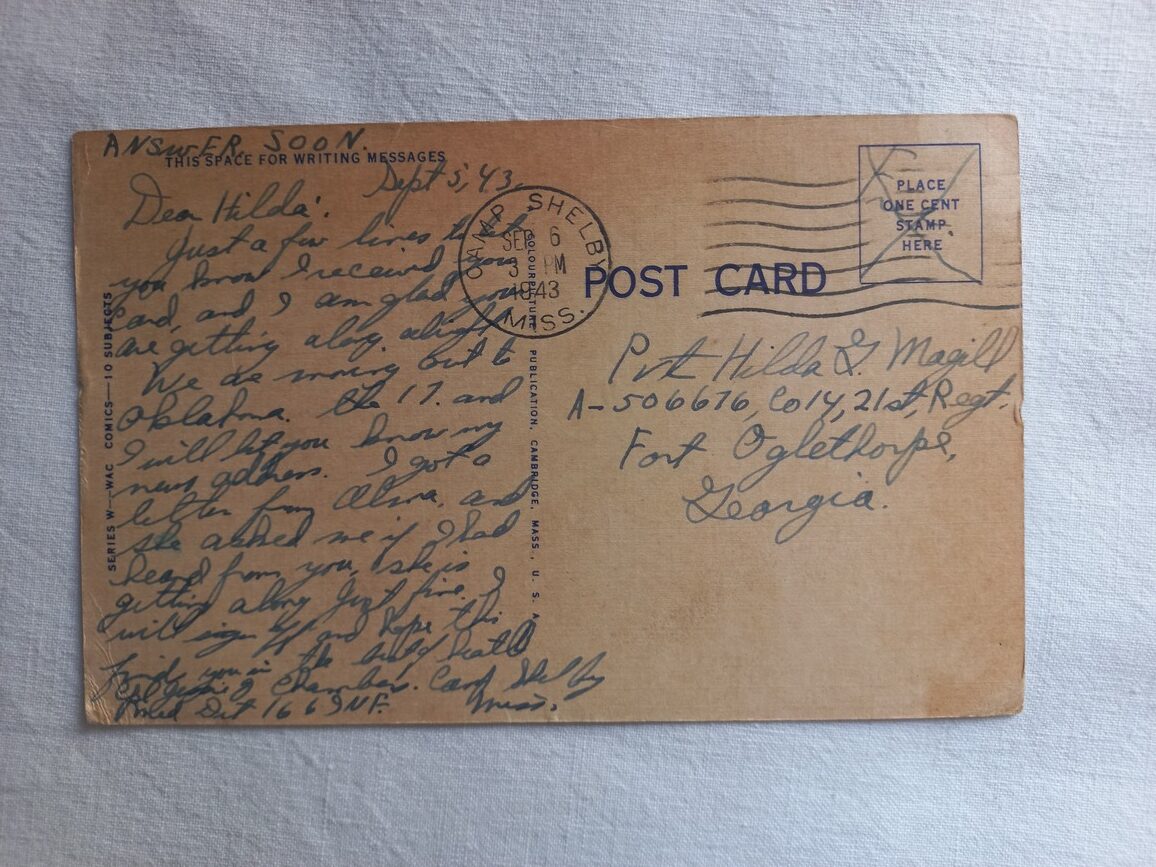 ANSWER SOON.
THIS SPACE FOR WRITING MESSAGES
Sept 5, 43.
Dear Hilda:
Just a few lines to let
you know I received your
card, and I am glad you
are getting along alright
We are moving out to
Oklahma. the 17. and
I will let you know my
new address. I got a
letter from Alma, and
she asked me if I had
heard from you, she is
getting along just fine. I
will sign off and hope this
finds you in the best of health
Chambers. Camp Shelby
Med Det 166 INF. Miss.
SERIES W—WAC COMICS—10 SUBJECTS
COLOURPICTURE PUBLICATION, CAMBRIDGE, MASS., U. S. A.
CAMP SHELBY
SEP 6
3 PM
1943
MISS.
POST CARD
PLACE
ONE CENT
STAMP
HERE
Pvt Hilda G. Magill
A-506676, Co 14, 21st, Regt.
Fort Oglethorpe,
Georgia.